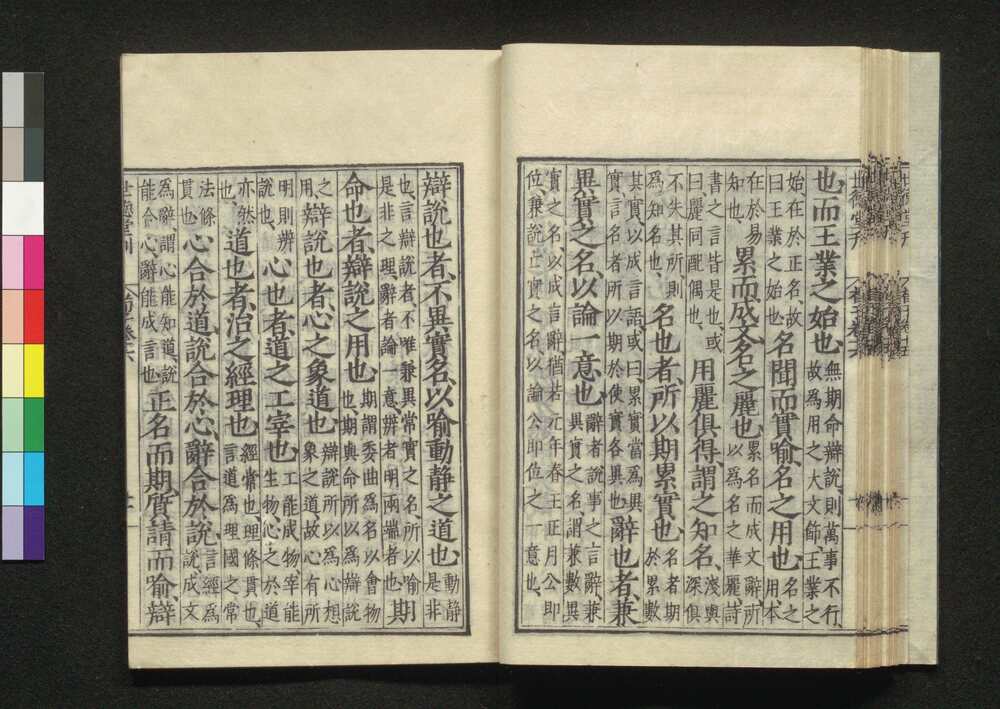 也而王業之始也無期命辯說則萬事不行
故為用之大文飾王業之
始在於正名故
曰王業之始也名聞而實喻名之用也名之
用本
在於易
知也累而成文名之麗也累名而成文辭所
以為名之華麗詩
書之言皆是也或
曰麗同配偶也用麗俱得謂之知名淺與
深俱
不失其所則
為知名也名也者所以期累實也名者期
於累數
其實以成言語或曰累實當為異
實言名者所以期於使實各異也辭也者兼
異實之名以論一意也辭者說事之言辭兼
異實之名謂兼數異
實之名以成言辭猶若元年春王正月公即
位兼說亡實之名以論公即位之一意也
辯說也者不異實名以喻動靜之道也動靜
是非
也言辯說者不唯兼異常實之名所以喻
是非之理辭者論一意辨者明兩端者也期
命也者辯說之用也期謂委曲為名以會物
也期與命所以為辯說
之
用辯說也者心之象道也辯說所以為心想
象之道故心有所
明則辨
說也心也者道之工宰也工能成物宰能
生物心之於道
亦然
也道也者治之經理也經常也理條貫也
言道為理國之常
法條
貫也心合於道說合於心辭合於說言經為
說成文
為辭謂心能知道說
能合心辭能成言也正名而期質請而喻辯
世德堂刊